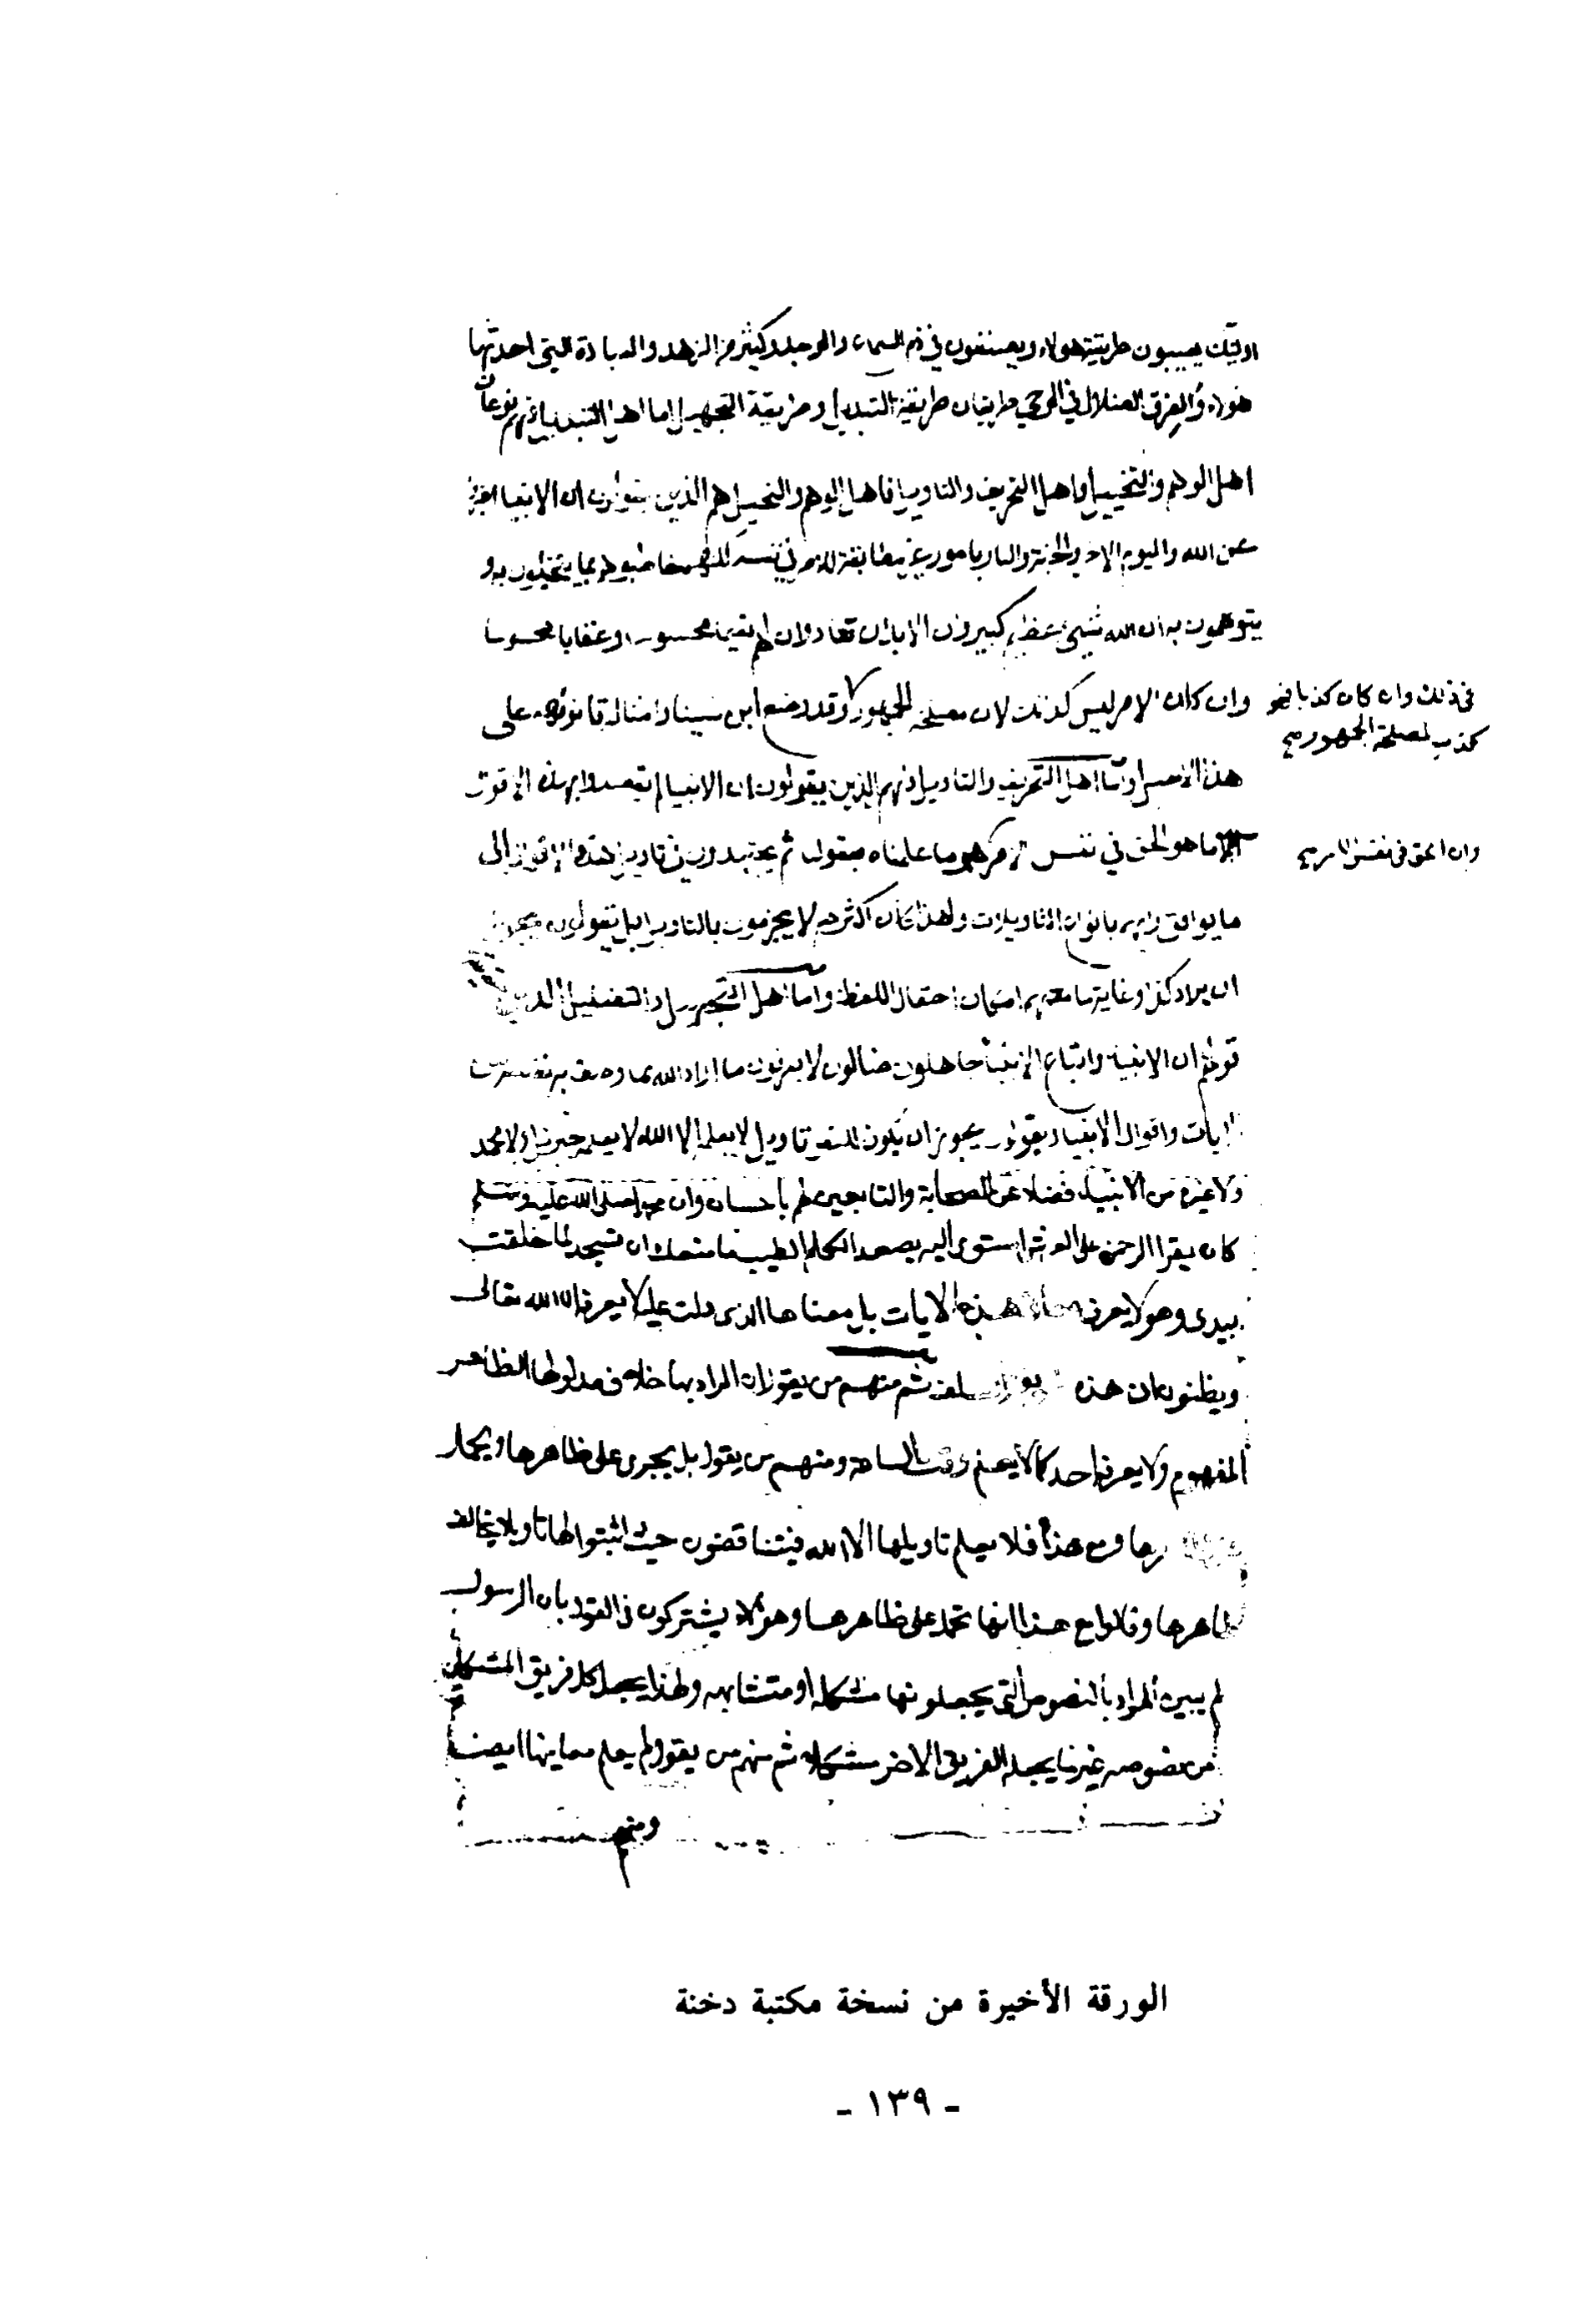 اولئك يعيبون طريقة هولاء ويصنفون في ذم السماع والوجد وكثير من الزهد والعبادة التي احدثها
هولاء والفرق الضلال في الوحي طريقان طريقة التبديل وطريقة التجهيل اما اهل التبديل فهم نوعان
اهل الوهم والتخييل واهل التحريف والتاويل فاهل الوهم والتخييل هم الذين يقولون ان الانبيا اخبروا
عن الله واليوم الاخر والجنة والنار بامور غير مطابقة للامر في نفسه لكنهم خاطبوهم بما يتخيلون به و
يتوهمون به ان الله شيء عظيم كبير وان الابدان تعاد وان لهم نعيما محسوسا وعقابا محسوسا
وان كان الامر ليس كذلك لان مصلحة الجمهور وقد وضع ابن سينا وامثاله قانونهم على
في ذلك وان كان كذبا فهو
كذب لمصلحة الجمهور صح
هذا الاصل واما اهل التحريف والتاويل فهم الذين يقولون ان الانبيا لم يقصدوا بهذه الاقوال
الا ما هو الحق في نفس الامر هو ما علمناه بعقولنا ثم يجتهدون في تاويل هذه الاقوال الى
وان الحق في نفس الامر صح
ما يوافق رايهم بانواع التاويلات ولهذا كان اكثرهم لا يجزمون بالتاويل بل يقولون يجوز
ان يراد كذا وغاية ما معهم امكان احتمال اللفظ واما اهل التجهيل والتضليل الذين
قولهم ان الانبيا واتباع الانبيا جاهلون ضالون لا يعرفون ما اراد الله بما وصف به نفسه من
الايات واقوال الانبيا ويقولون يجوز ان يكون للنص تاويل لا يعلمه الا الله لا يعلمه جبريل ولا محمد
ولا غيره من الانبياء فضلا عن الصحابة والتابعين لهم باحسان وان محمدا صلى الله عليه وسلم
كان يقرا الرحمن على العرش استوى اليه يصعد الكلم الطيب ما منعك ان تسجد لما خلقت
بيدي وهو لا يعرف معاني هذه الايات بل معناها الذي دلت عليه لا يعرفه الا الله تعالى
ويظنون ان هذه السلف ثم منهم من يقول ان المراد بها خلاف مدلولها الظاهر
المفهوم ولا يعرفه احد كما لا يعلم وقت الساعة ومنهم من يقول بل يجرى على ظاهرها ويحمل
ومع هذا فلا يعلم تاويلها الا الله فيتناقضون حيث اثبتوا لها تاويلا يخالف
ظاهرها وقالوا مع هذا انها تحمل على ظاهرها وهؤلاء يشتركون في القول بان الرسول
لم يبين المراد بالنصوص التي يجعلونها مشكلة او متشابهه ولهذا يجعل كل فريق المشكل
من نصوصه غير ما يجعله الفريق الاخر مشكلا ثم منهم من يقول لم يعلم معانيها ايضا
ومنهم
الورقة الأخيرة من نسخة مكتبة دخنة
- ١٣٩ -